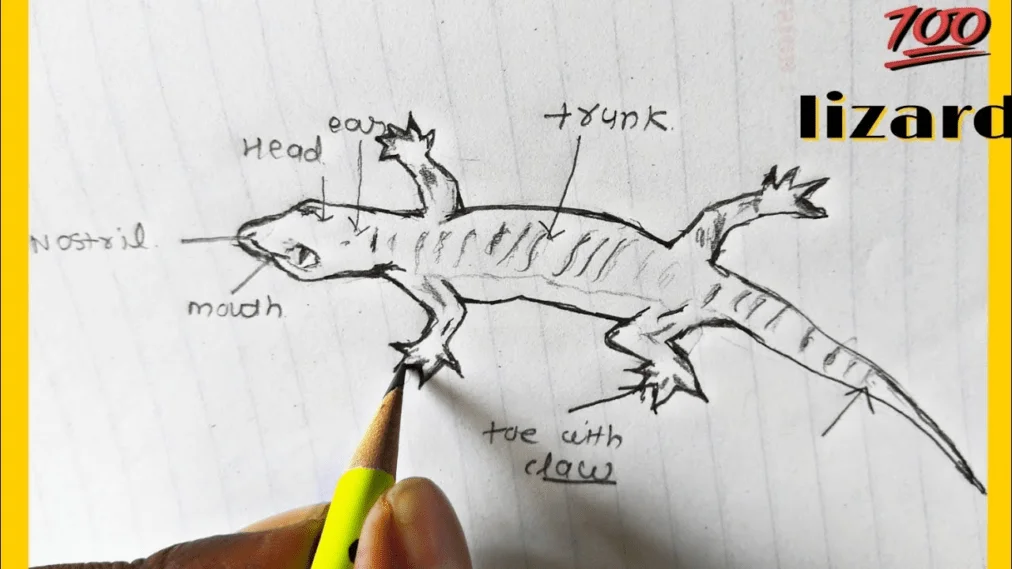 💯
lizard
ear
trunk.
Head
Nostril.
mouth.
toe with
claw